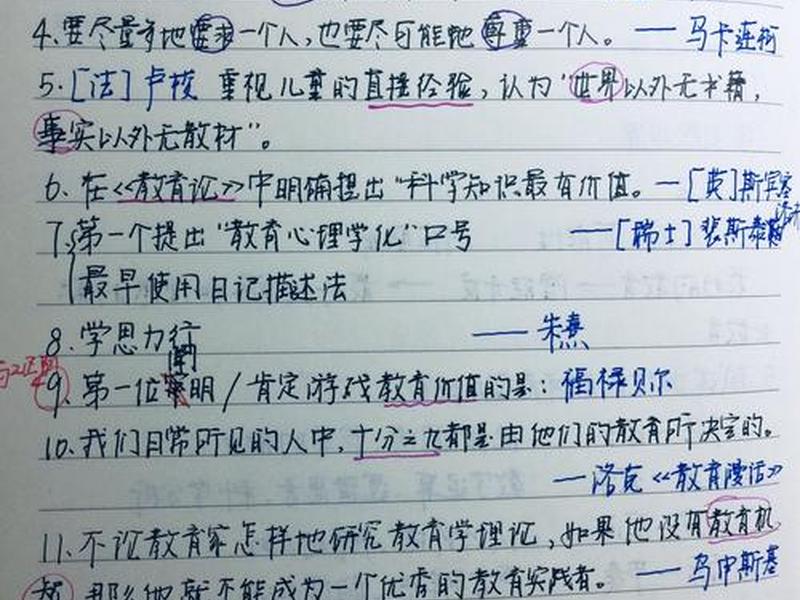 4.要尽量多地要求一个人,也要尽可能地尊重一个人。——马卡连柯
5.[法]卢梭 重视儿童的直接经验,认为"世界以外无书籍,
事实以外无教材"。
6.在《教育论》中明确提出"科学知识最有价值。—[英]斯宾塞
7.第一个提出"教育心理学化"口号 ——[瑞士]裴斯泰洛齐
最早使用日记描述法
8.学思力行 ——朱熹
9.第一位阐明/肯定游戏教育价值的是:福禄贝尔
10.我们日常所见的人中,十分之九都是由他们的教育所决定的。
—洛克《教育漫话》
11.不论教育家怎样地研究教育学理论,如果他没有教育机
智,那么他就不能成为一个优秀的教育实践者。——乌申斯基